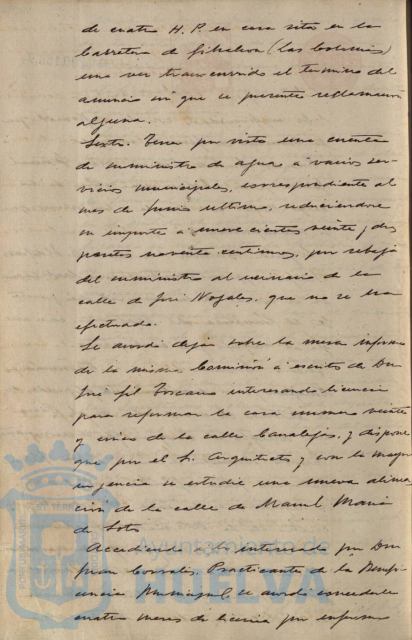 de cuatro H. P. en casa sita en la
Carretera de Gibraleon (Las Colonias)
una vez transcurrido el termino del
anuncio sin que se presente reclamación
alguna.
Sexto. Tener por visto una cuenta
de suministro de agua á varios ser-
vicios municipales, correspondiente al
mes de Junio ultimo, reduciendose
su importe á nueve cientas veinte y dos
pesetas noventa centimos, por rebaja
del suministro al urinario de la
calle de José Nogales, que no se ha
efectuado.
Se acordó dejar sobre la mesa informe
de la misma Comisión á escrito de Don
José Gil Toscano interesando licencia
para reformar la casa numero veinte
y cinco de la calle Canalejas, y disponer
que por el Sr. Arquitecto y con la mayor
urgencia se estudie una nueva alinea-
ción de la calle de Manuel Maria
de Soto.
Accediendo á lo interesado por Don
Juan Corrales, Practicante de la Benefi-
cencia Municipal, se acordó concederle
cuatro meses de licencia por enfermo
Ayuntamiento de
HUELVA